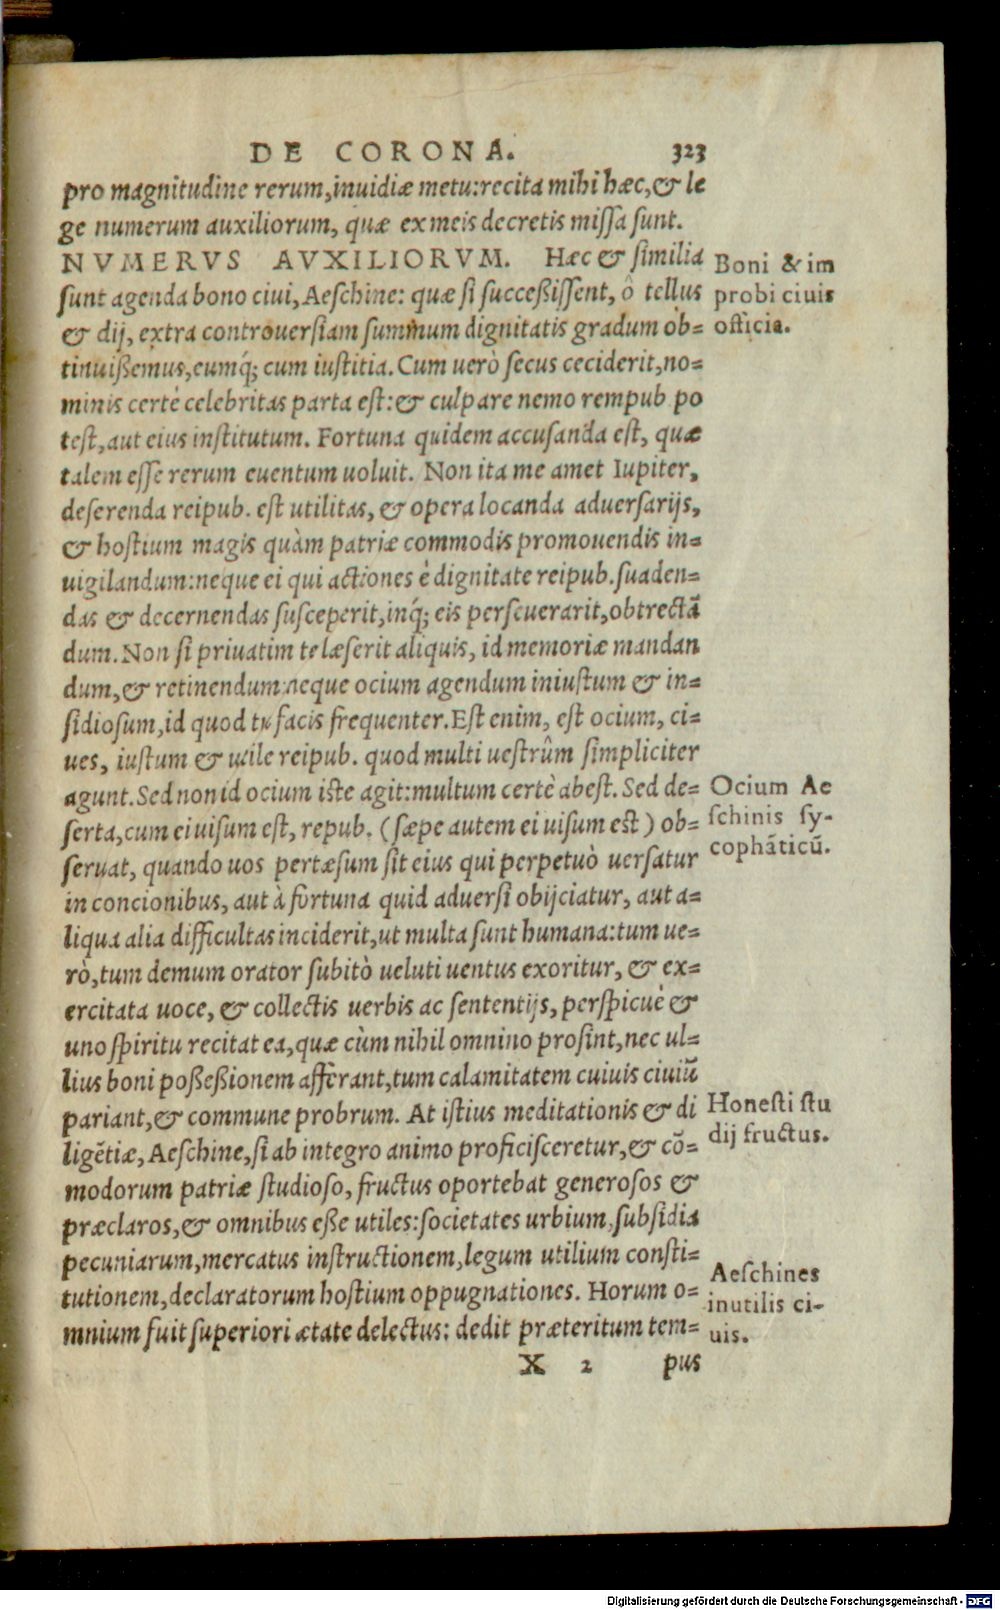 DE CORONA. 323
pro magnitudine rerum, inuidiæ metu: recita mihi hæc, & le
ge numerum auxiliorum, quæ ex meis decretis missa sunt.
NVMERVS AVXILIORVM. Hæc & similia
sunt agenda bono ciui, Aeschine: quæ si succeßissent, ô tellus
& dij, extra controuersiam summum dignitatis gradum ob=
tinuißemus, eumq́; cum iustitia. Cum uerò secus ceciderit, no=
minis certè celebritas parta est: & culpare nemo rempub. po
test, aut eius institutum. Fortuna quidem accusanda est, quæ
talem esse rerum euentum uoluit. Non ita me amet Iupiter,
deserenda reipub. est utilitas, & opera locanda aduersarijs,
& hostium magis quàm patriæ commodis promouendis in=
uigilandum: neque ei qui actiones è dignitate reipub. suaden=
das & decernendas susceperit, inq́; eis perseuerarit, obtrectā
dum. Non si priuatim te læserit aliquis, id memoriæ mandan
dum, & retinendum: neque ocium agendum iniustum & in=
sidiosum, id quod tu facis frequenter. Est enim, est ocium, ci=
ues, iustum & utile reipub. quod multi uestrûm simpliciter
agunt. Sed non id ocium iste agit: multum certè abest. Sed de=
serta, cum ei uisum est, repub. (sæpe autem ei uisum est) ob=
seruat, quando uos pertæsum sit eius qui perpetuò uersatur
in concionibus, aut à fortuna quid aduersi obijciatur, aut a=
liqua alia difficultas inciderit, ut multa sunt humana: tum ue=
rò, tum demum orator subitò ueluti uentus exoritur, & ex=
ercitata uoce, & collectis uerbis ac sententijs, perspicuè &
uno spiritu recitat ea, quæ cùm nihil omnino prosint, nec ul=
lius boni poßeßionem afferant, tum calamitatem cuiuis ciuiū
pariant, & commune probrum. At istius meditationis & di
ligētiæ, Aeschine, si ab integro animo proficisceretur, & cō=
modorum patriæ studioso, fructus oportebat generosos &
præclaros, & omnibus eße utiles: societates urbium, subsidia
pecuniarum, mercatus instructionem, legum utilium consti=
tutionem, declaratorum hostium oppugnationes. Horum o=
mnium fuit superiori ætate delectus: dedit præteritum tem=
X 2 pus
Boni & im
probi ciuis
officia.
Ocium Ae
schinis sy-
cophāticū.
Honesti stu
dij fructus.
Aeschines
inutilis ci-
uis.
Digitalisierung gefördert durch die Deutsche Forschungsgemeinschaft - DFG